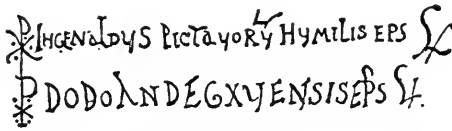 ☧ INGENALDYS PICTAYORY HYMILIS EPS
☧ DODO ANDEGAYENSIS EPS